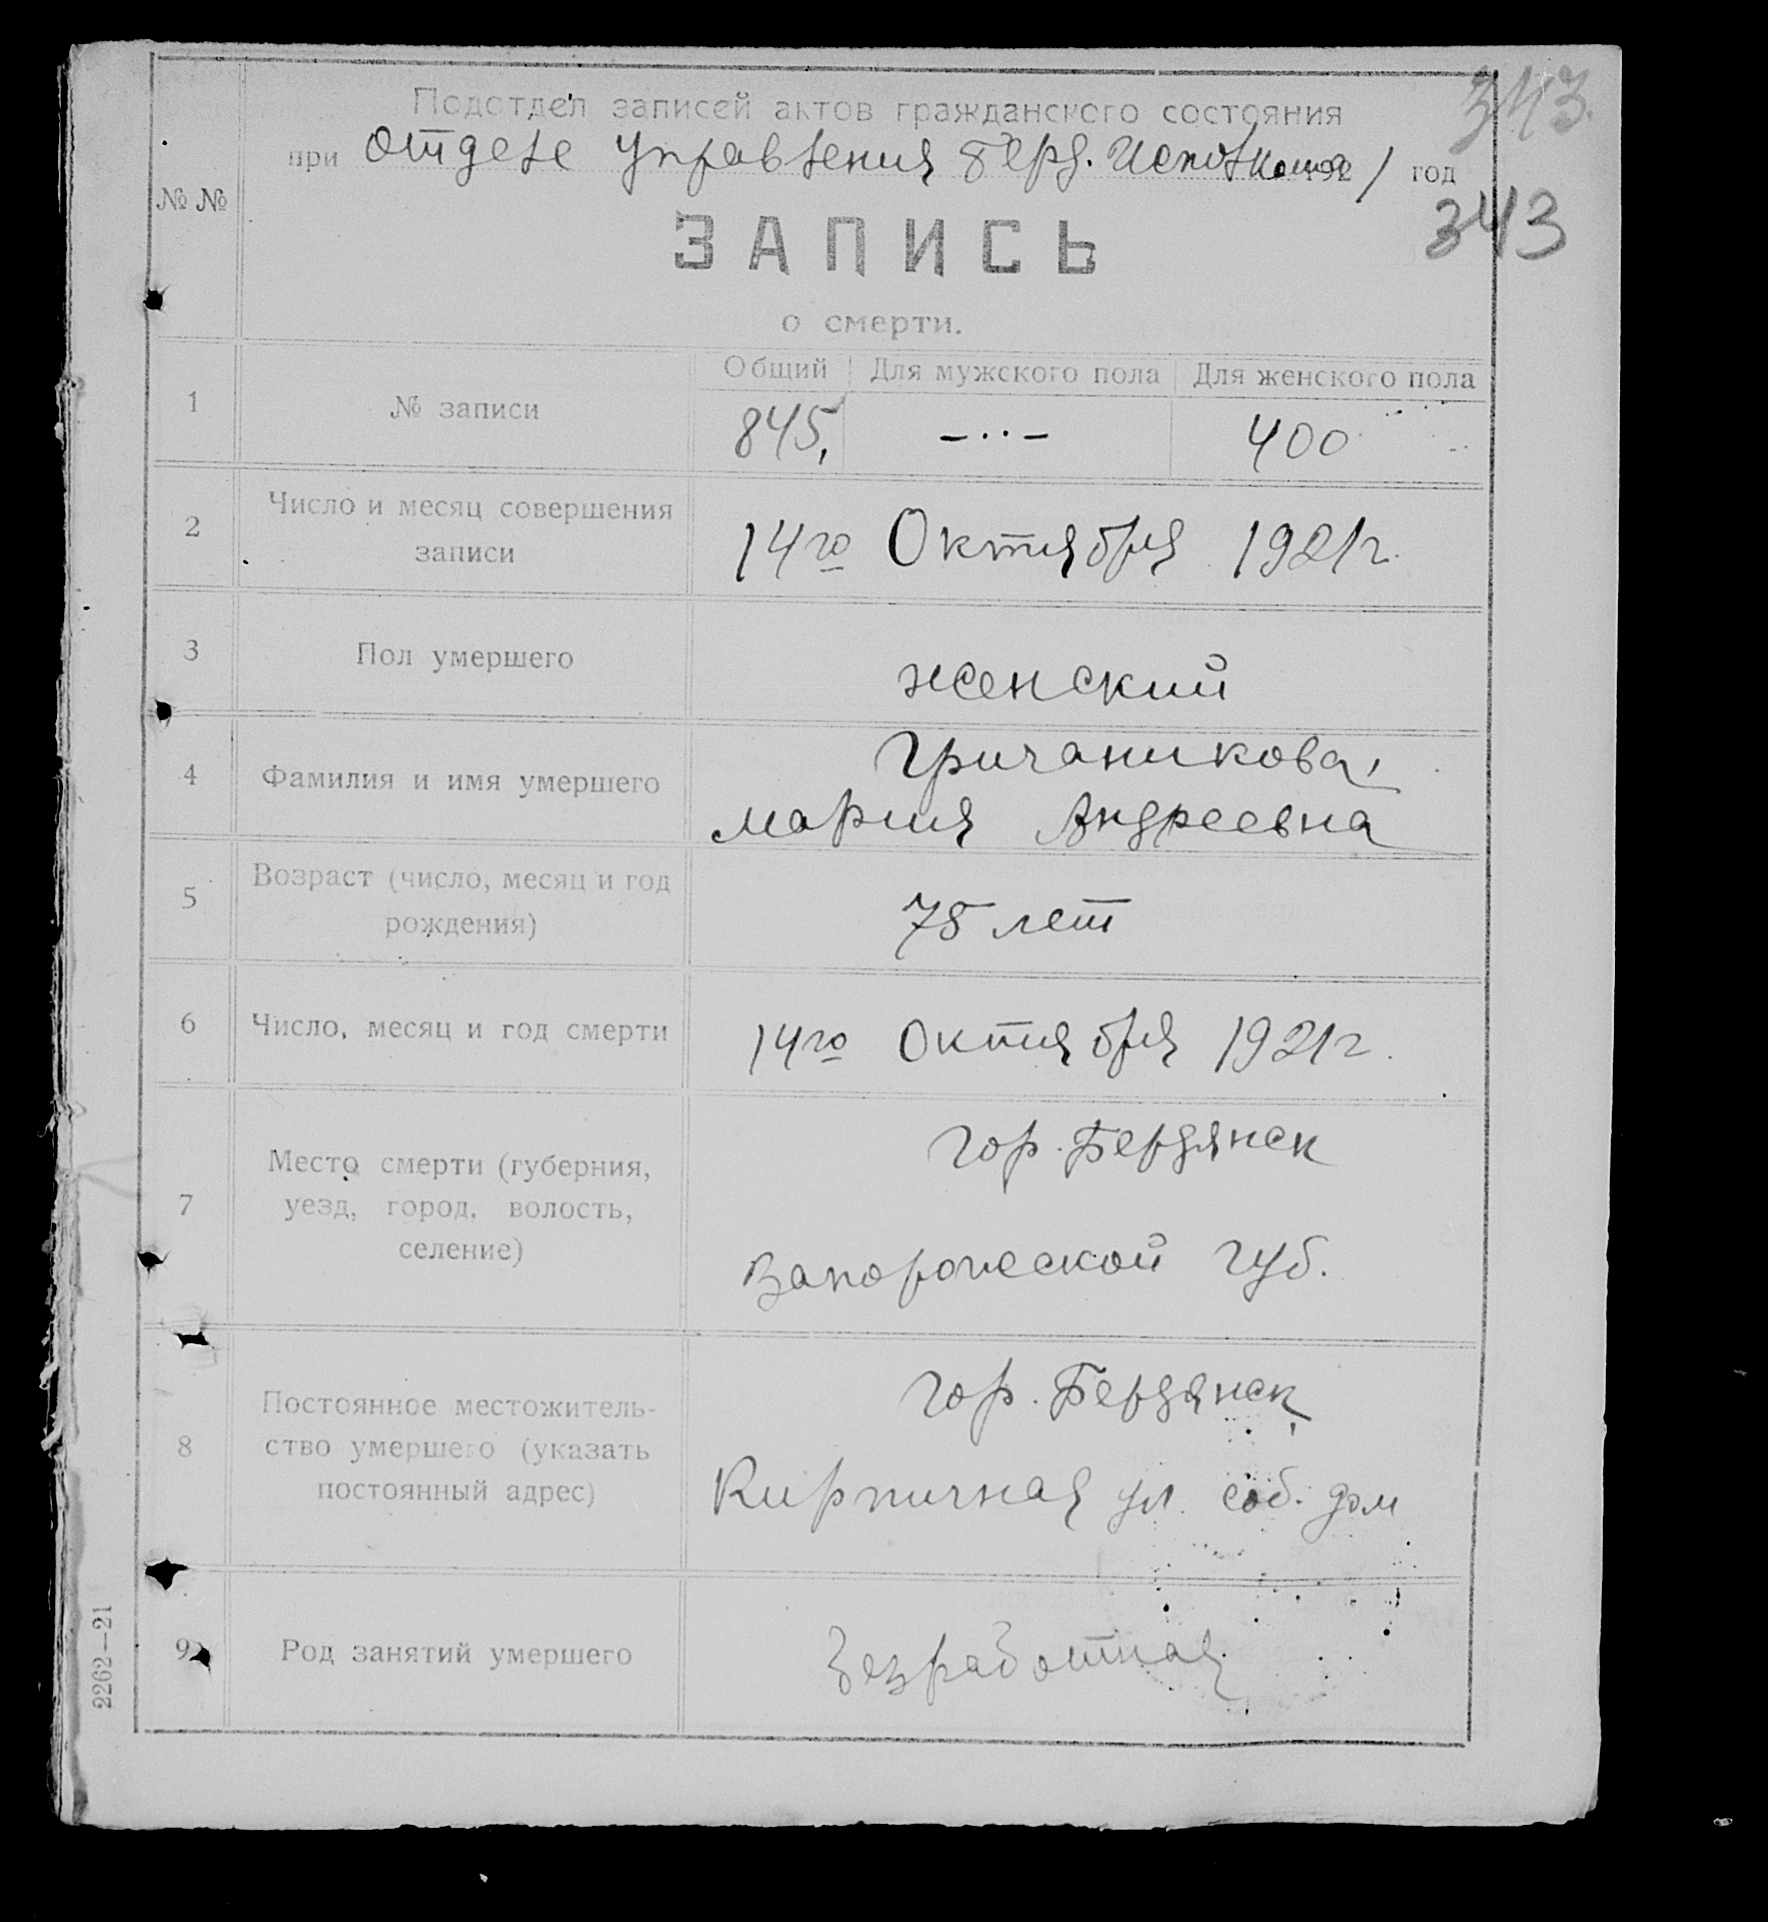 343.
Подотдел записей актов гражданского состояния
при отделе управления Берд. Исполкома 1921 год
343
№ №
ЗАПИСЬ
о смерти.
Общий Для мужского пола Для женского пола
1 № записи 845, — ·· — 400
2 Число и месяц совершения
записи
14го Октября 1921г.
3 Пол умершего женский
4 Фамилия и имя умершего
Гричаникова,
Мария Андреевна
5 Возраст (число, месяц и год
рождения)
75 лет
6 Число, месяц и год смерти 14го Октября 1921г.
7 Место смерти (губерния,
уезд, город, волость,
селение)
гор. Бердянск
Запорожской губ.
8 Постоянное местожитель-
ство умершего (указать
постоянный адрес)
гор. Бердянск,
Кирпичная ул. соб. дом
9 Род занятий умершего Безработная
2262—21